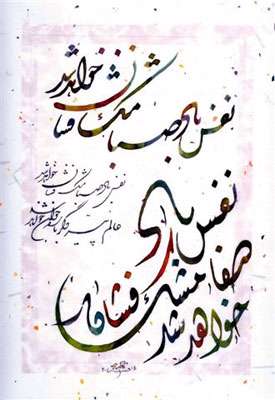 نفس باد صبا مشک فشان خواهد شد
نفس باد صبا مشک فشان خواهد شد
عالم پیر دگرباره جوان خواهد شد
نفس باد
صبا مشک فشان
خواهد شد